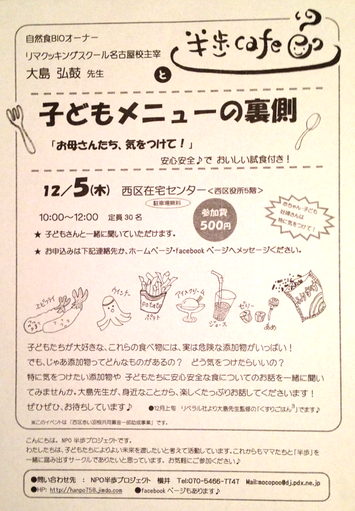 自然食BIOオーナー
リマクッキングスクール名古屋校主宰
大島 弘鼓 先生
と
半歩cafe
子どもメニューの裏側
「お母さんたち、気をつけて！」
安心安全♪で おいしい試食付き！
12/5(木) 西区在宅センター<西区役所5階>
駐車場無料
10:00～12:00 定員30名
参加費
500円
赤ちゃん・子ども
妊婦さんは
特に気をつけて！
★ 子どもさんと一緒に聞いていただけます。
★ お申込みは下記連絡先か、ホームページ・facebookページへメッセージください。
エビフライ
ウインナー
potato
ポテト
アイスクリーム
ジュース
ゼリー
あめ
子どもたちが大好きな、これらの食べ物には、実は危険な添加物がいっぱい！
でも、じゃあ添加物ってどんなものがあるの？ どう気をつけたらいいの？
特に気をつけたい添加物や 子どもたちに安心安全な食についてのお話を一緒に聞い
てみませんか。大島先生が、身近なことから、楽しくたっぷりお話してくださいます！
ぜひぜひ、お待ちしています♪
●12月上旬 リベラル社より大島先生監修の「くすりごはん」でます♪
※このイベントは「西区赤い羽根共同募金一部助成事業」です。
こんにちは。NPO 半歩プロジェクトです。
わたしたちは、子どもたちによりよい未来を渡したいと考えて活動しています。これからもママたちと「半歩」を
一緒に踏み出すサークルでありたいと思っています。お気軽にご参加ください♪
●問い合わせ先 ： NPO 半歩プロジェクト 横井 Tel:070-5466-7747 Mail:mocopoo@dj.pdx.ne.jp
●HP: http://hanpo758.jimdo.com ●facebookページもあります♪